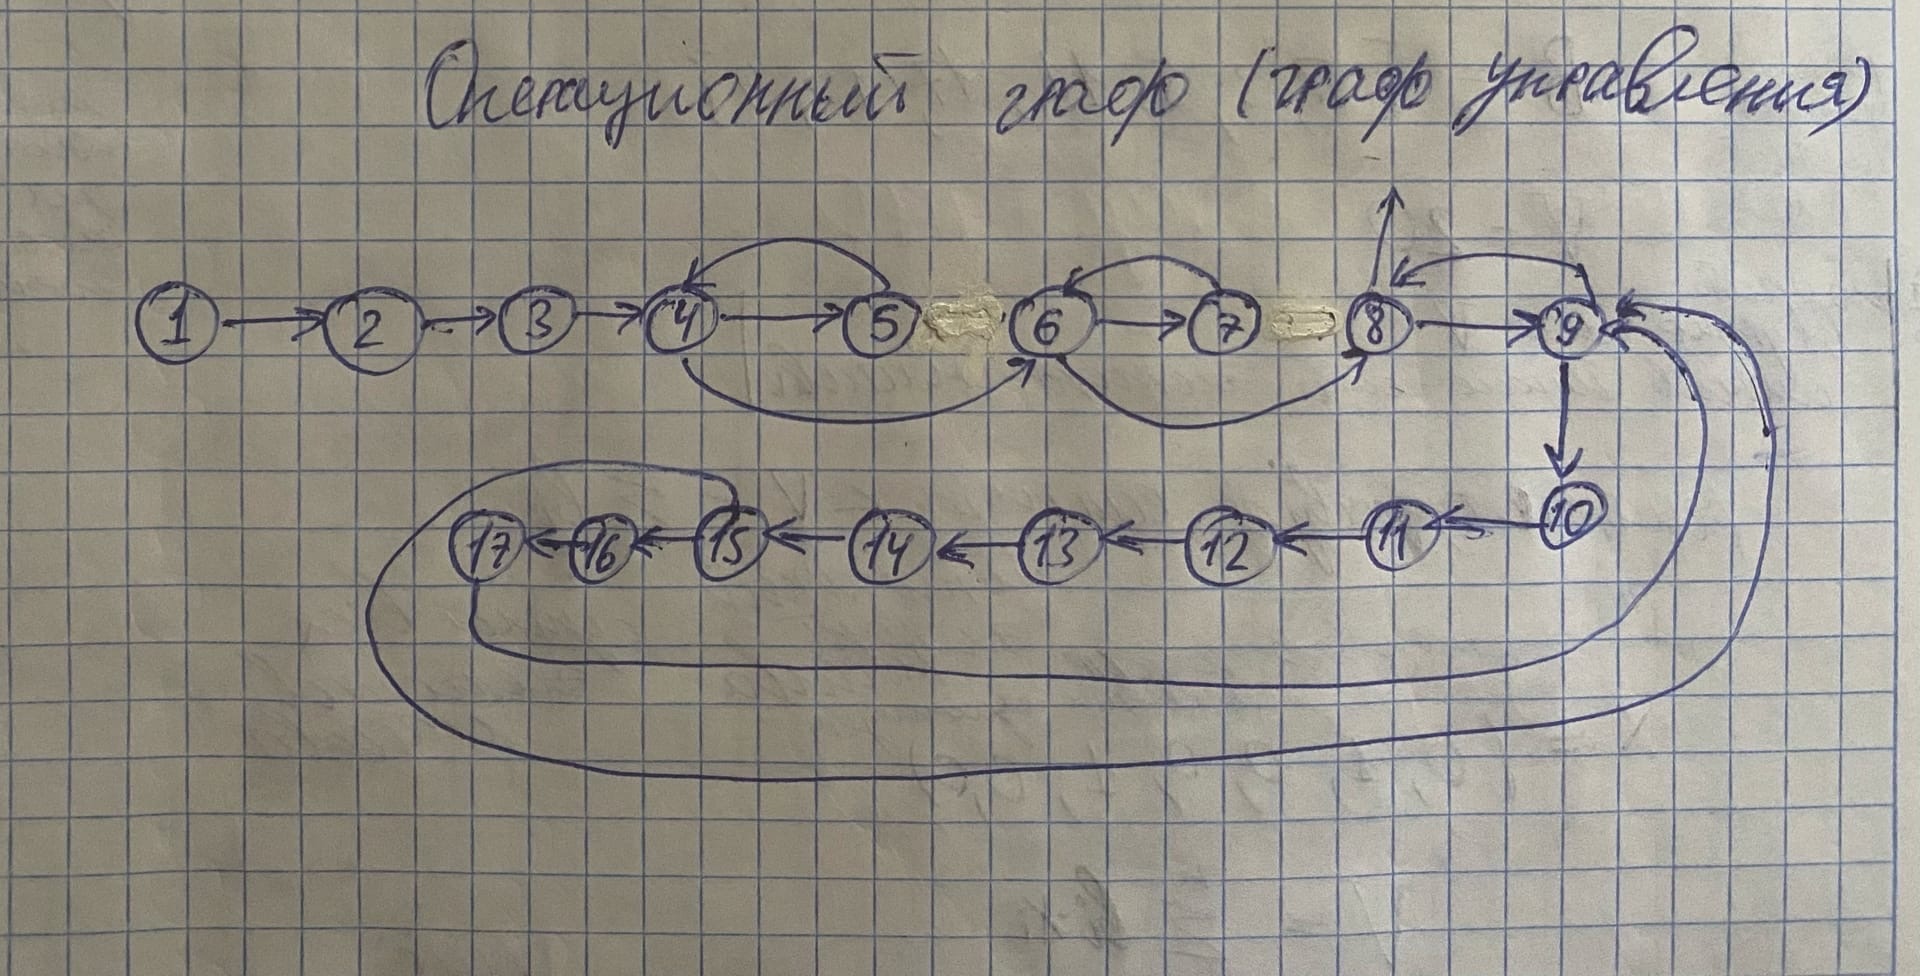 Операционный граф (граф управления)
1 2 3 4 5 6 7 8 9
17 16 15 14 13 12 11 10